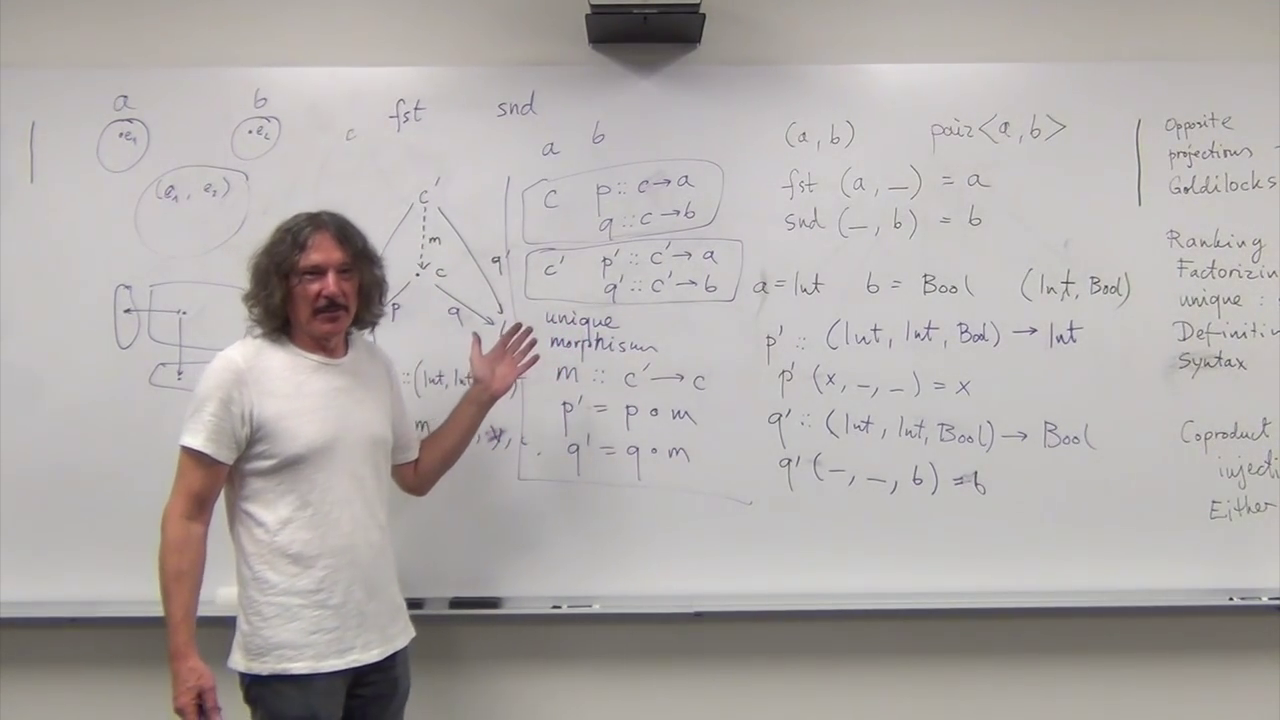 a b
•e₁ •e₂
(e₁, e₂)
c fst snd
c′
m
c
p q
q′
:: (Int, Int
m
a b
c p :: c → a
q :: c → b
c′ p′ :: c′ → a
q′ :: c′ → b
unique
morphism
m :: c′ → c
p′ = p ∘ m
q′ = q ∘ m
(a, b) pair<a, b>
fst (a, _) = a
snd (_, b) = b
a = Int b = Bool (Int, Bool)
p′ :: (Int, Int, Bool) → Int
p′ (x, _, _) = x
q′ :: (Int, Int, Bool) → Bool
q′ (_, _, b) = b
Opposite
projections
Goldilocks
Ranking
Factorizin
unique :
Definiti
Syntax
Coproduct
injecti
Either